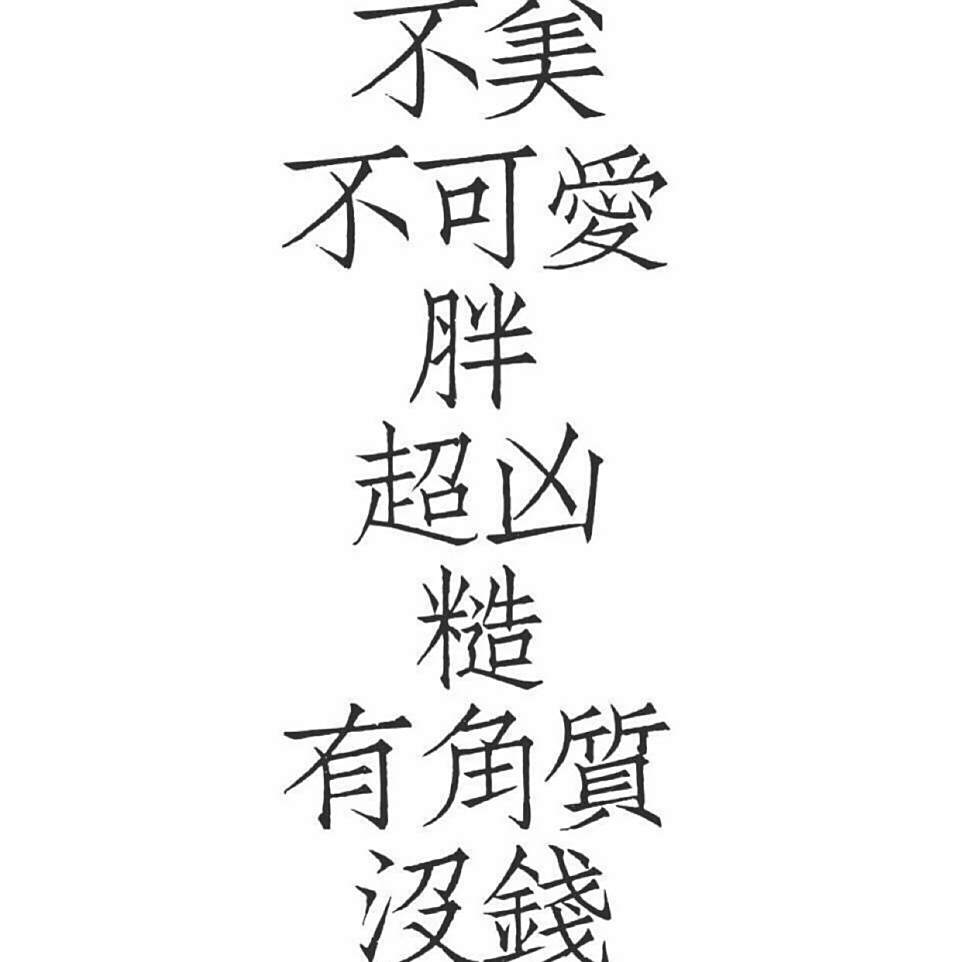 不美
不可愛
胖
超凶
糙
有角質
沒錢